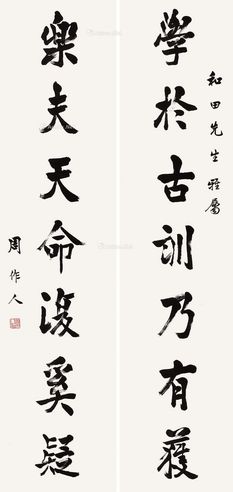 和田先生雅屬
學於古訓乃有獲
樂夫天命復奚疑
周作人